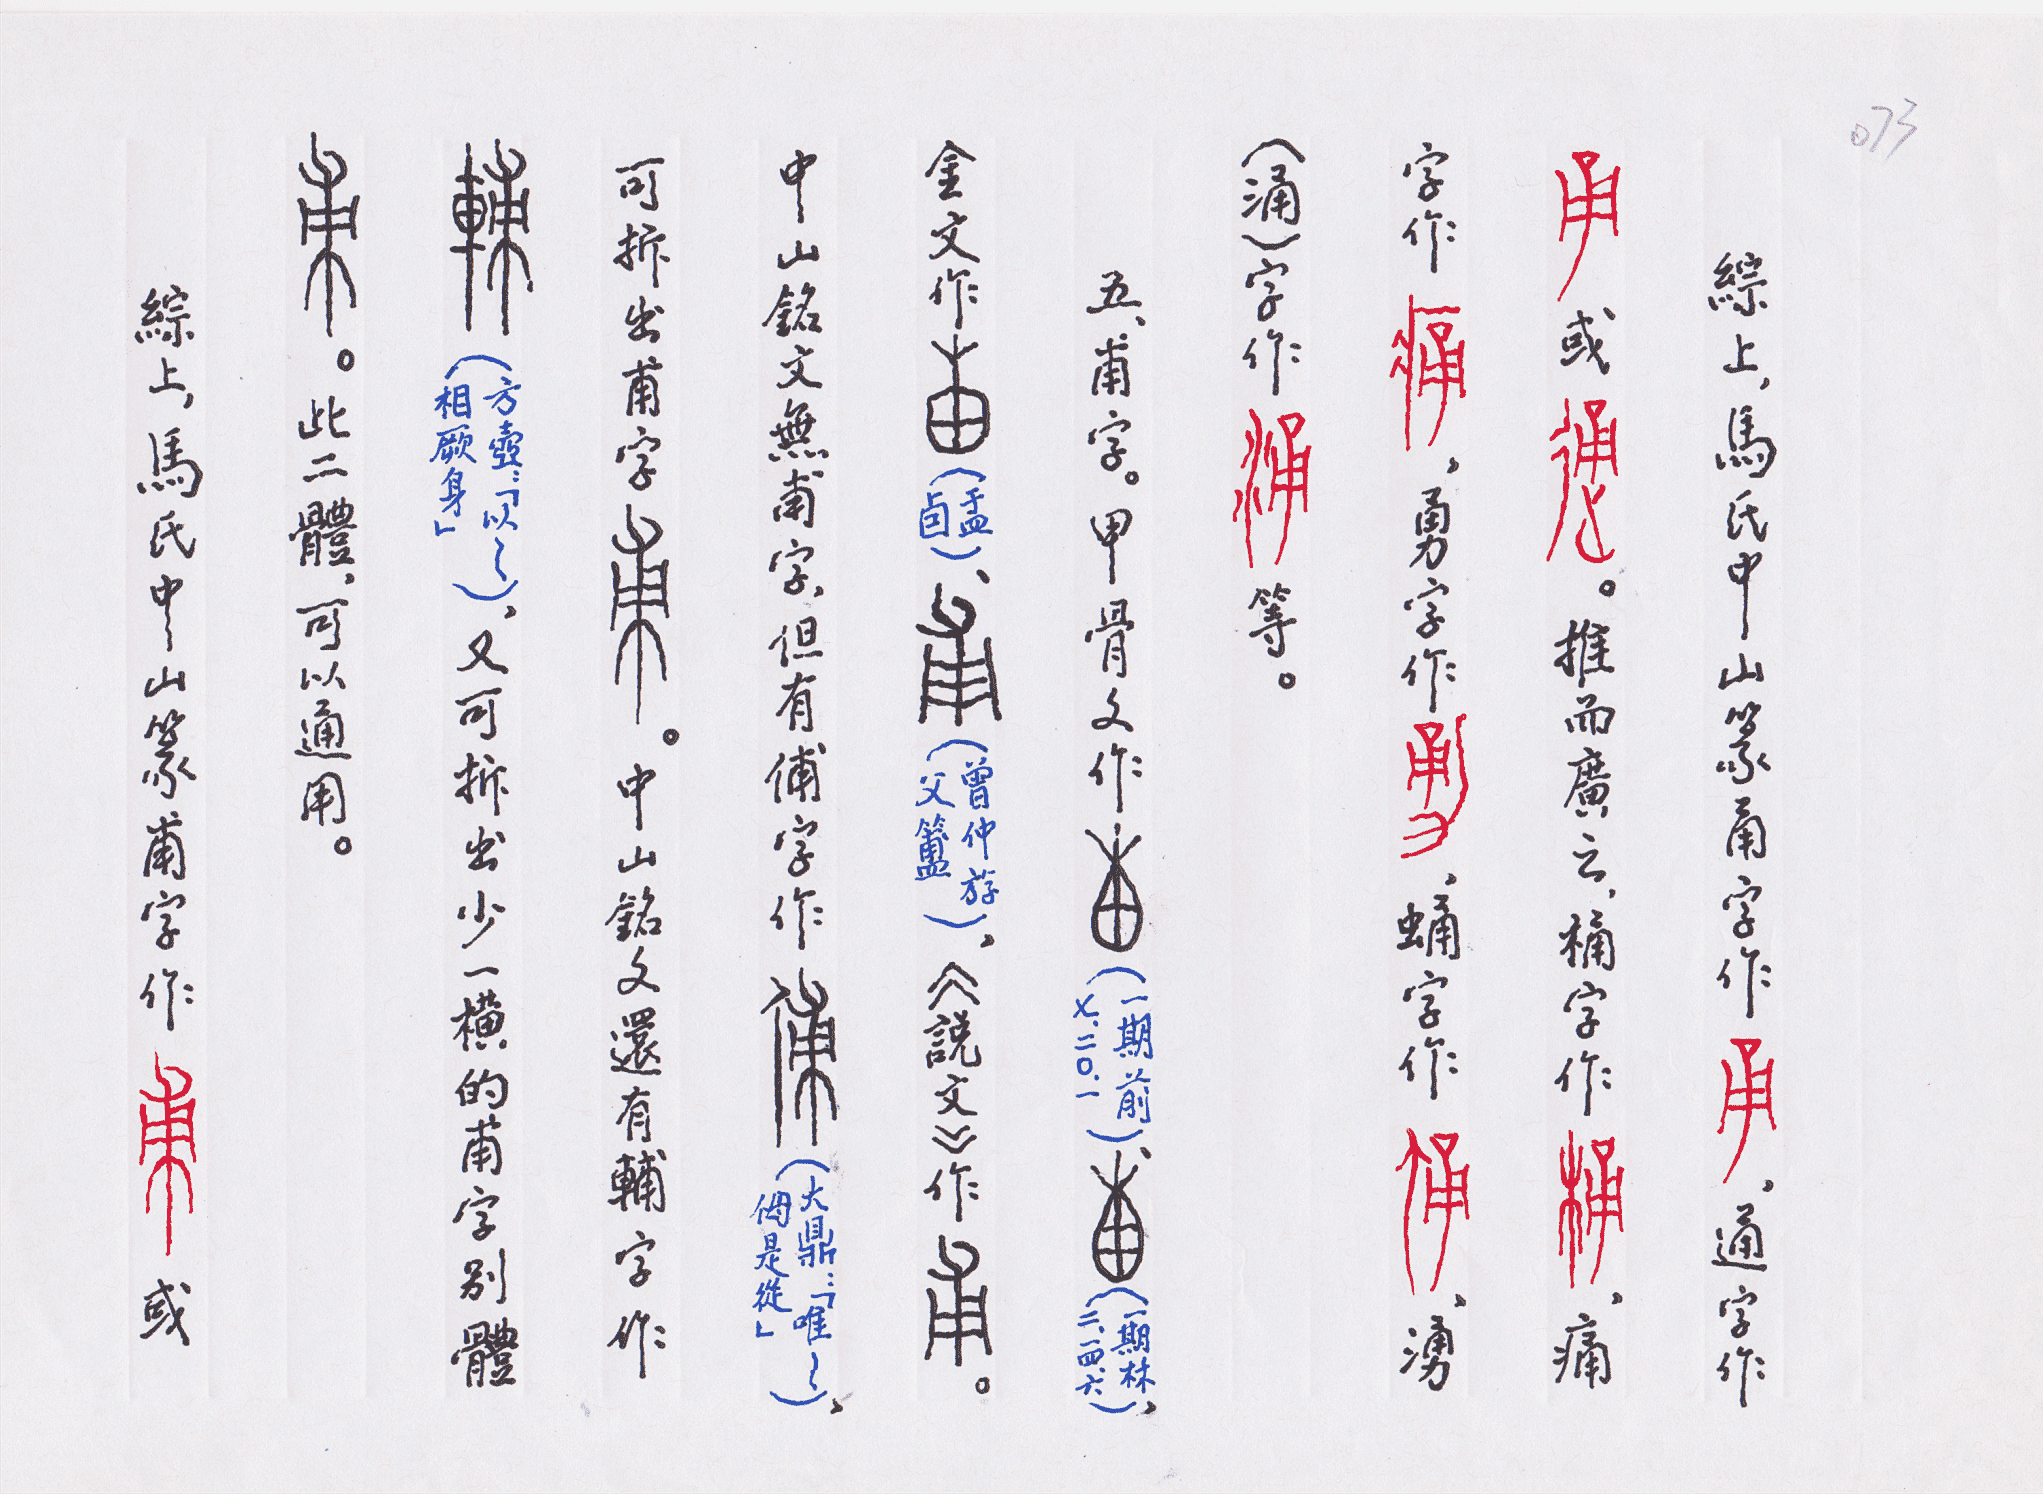 073
綜上，馬氏中山篆甬字作甬，通字作
甬或通。推而廣之，桶字作桶，痛
字作痛，勇字作勇，蛹字作蛹，湧
（涌）字作涌等。
五、甫字。甲骨文作甫（一期前七．二〇．一）、甫（一期林二．一四．六），
金文作甫（盂卣）、甫（曾仲斿父簠），《說文》作甫。
中山銘文無甫字，但有俌字作俌（大鼎：「唯〜侮是從」），
可拆出甫字甫。中山銘文還有輔字作
輔（方壺：「以〜相厥身」），又可拆出少一橫的甫字別體
甫。此二體，可以通用。
綜上，馬氏中山篆甫字作甫或